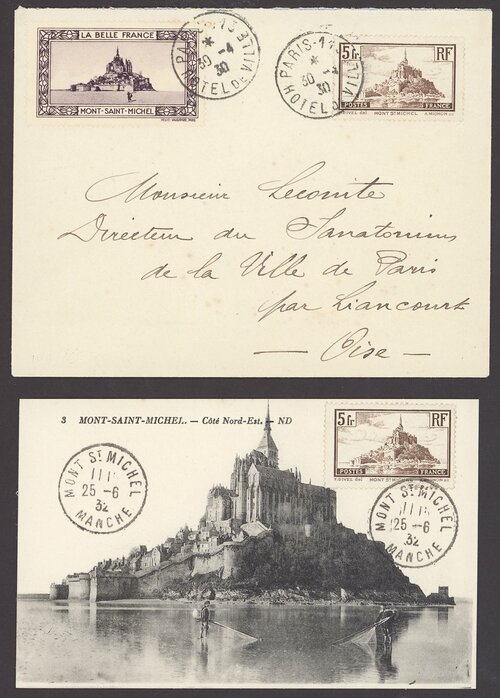 LA BELLE FRANCE
MONT-SAINT-MICHEL
PARIS-113
*
30-4
30
HOTEL DE VILLE
PARIS-113
*
30-4
30
HOTEL DE VILLE
5fr. RF
POSTES FRANCE
MONT ST MICHEL
Monsieur Lecomte
Directeur du Sanatorium
de la Ville de Paris
par Liancourt
— Oise —
3 MONT-SAINT-MICHEL. — Côté Nord-Est. — ND
5fr. RF
POSTES FRANCE
MONT ST MICHEL
MONT ST MICHEL
25-6
32
MANCHE
MONT ST MICHEL
25-6
32
MANCHE